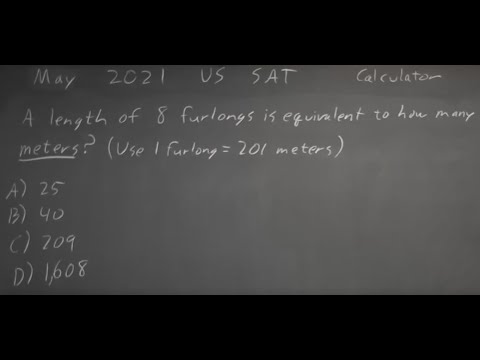 May 2021 US SAT Calculator
A length of 8 furlongs is equivalent to how many
meters? (Use 1 furlong = 201 meters)
A) 25
B) 40
C) 209
D) 1,608